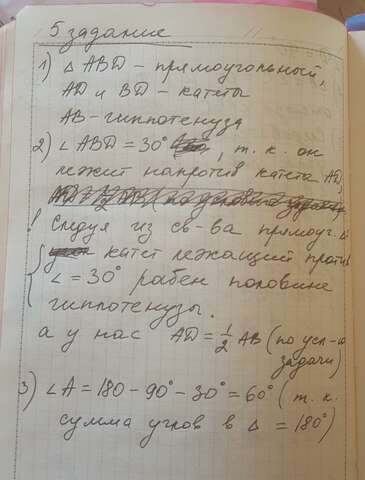 5 задание
1) △ ABD – прямоугольный,
AD и BD – катеты
AB – гиппотенуза
2) ∠ ABD = 30°, т. к. он
лежит напротив катета AD,
! Следуя из св-ва прямоуг. △
катет лежащий против
∠ = 30° равен половине
гиппотенузы.
а у нас AD = 1/2 AB (по усл-ю
задачи)
3) ∠A = 180 – 90° – 30° = 60° (т. к.
сумма углов в △ = 180°)